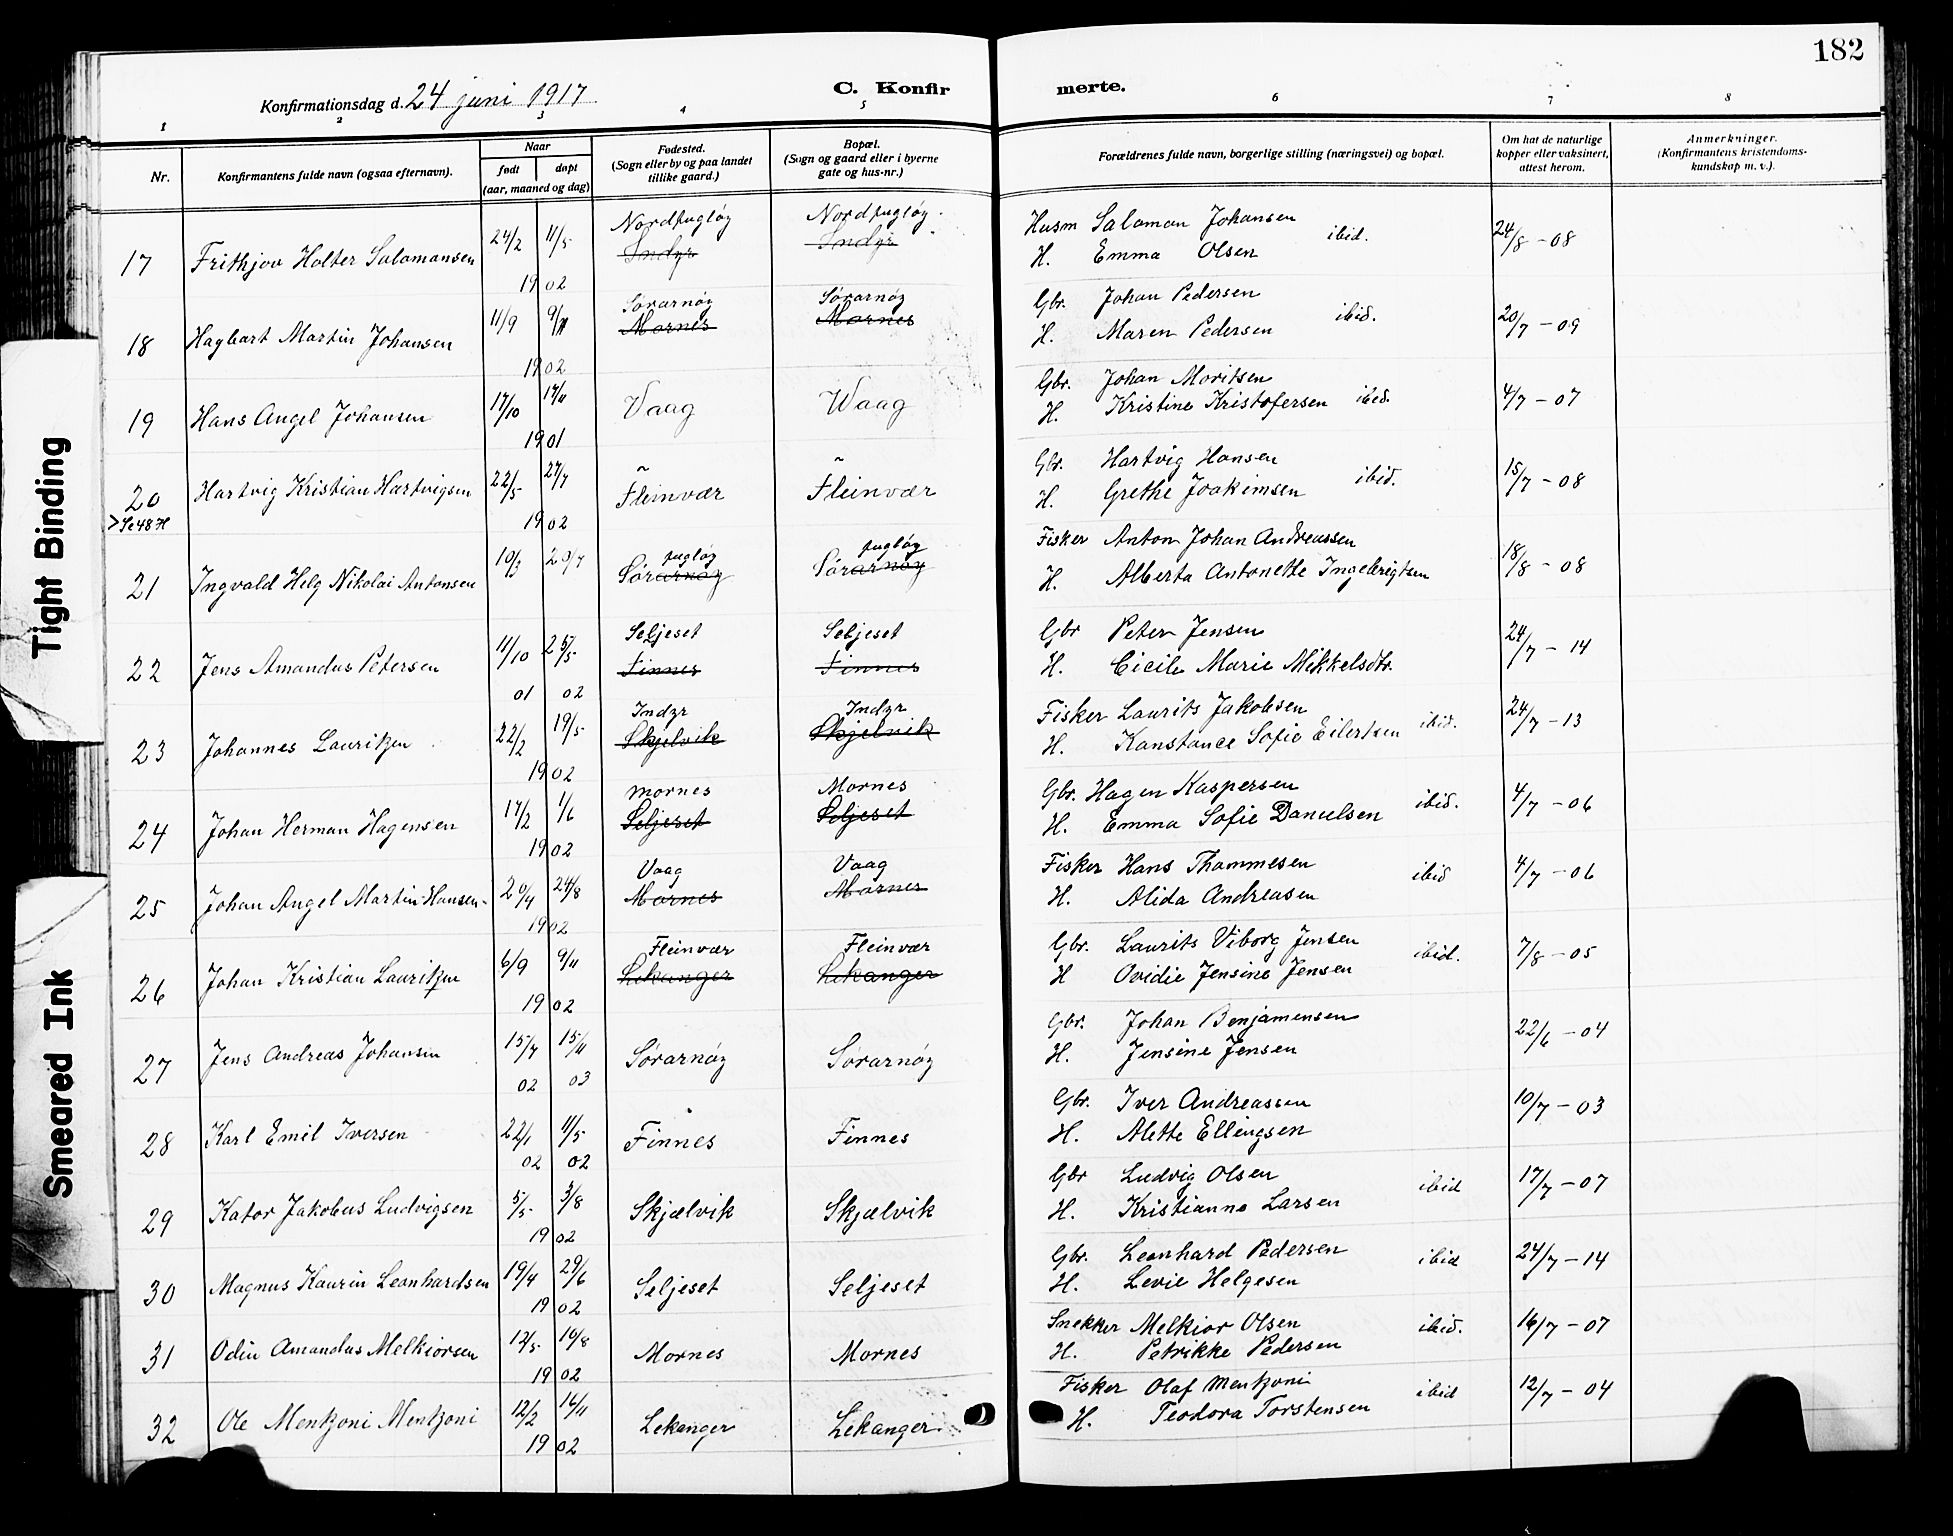 182
Konfirmationsdag d. 24 juni 1917
C. Konfirmerte.
1 2 3 4 5 6 7 8
Nr.
Konfirmantens fulde navn (ogsaa efternavn).
Naar
født døpt
(aar, maaned og dag)
Fødested.
(Sogn eller by og paa landet
tillike gaard.)
Bopæl.
(Sogn og gaard eller i byerne
gate og hus-nr.)
Forældrenes fulde navn, borgerlige stilling (næringsvei) og bopæl.
Om hat de naturlige
kopper eller vaksinert,
attest herom.
Anmerkninger.
(Konfirmantens kristendoms-
kundskap m. v.).
Nordfugløy Nordfugløy Husm Salaman Johansen
17 Frithjov Holter Salamansen 24/2 11/5 Indyr Indyr H. Emma Olsen ibid. 24/8 - 08
1902
Sørarnøy Sørarnøy Gbr. Johan Pedersen
18 Hagbart Martin Johansen 11/9 9/11 Mornes Mornes H. Maren Pedersen ibid. 20/7 - 09
1902
Gbr. Johan Moritsen
19 Hans Angel Johansen 17/10 17/11 Vaag Waag H. Kristine Kristofersen ibid. 4/7 - 07
1901
Gbr. Hartvig Hansen
20 Hartvig Kristian Hartvigsen 22/5 27/7 Fleinvær Fleinvær H. Grethe Joakimsen ibid. 15/7 - 08
>Se 48 H 1902
fugløy fugløy Fisker Anton Johan Andreassen
21 Ingvald Helg Nikolai Antonsen 10/3 20/7 Sørarnøy Sørarnøy H. Alberta Antonette Ingebrigtsen 18/8 - 08
Seljeset Seljeset Gbr Peter Jensen
22 Jens Amandus Petersen 11/10 25/5 Finnes Finnes H. Cicile Marie Mikkelsdtr. 24/7 - 14
01 02
Indyr Indyr Fisker Laurits Jakobsen
23 Johannes Lauritzen 22/2 19/5 Skjelvik Skjelvik H. Konstance Sofie Eilertsen ibid. 24/7 - 13
1902
Mornes Mornes Gbr. Hagen Kaspersen
24 Johan Herman Hagensen 17/2 1/6 Seljeset Seljeset H. Emma Sofie Danielsen ibid. 4/7 - 06
1902
Vaag Vaag Fisker Hans Thommesen
25 Johan Angel Martin Hansen 20/4 24/8 Mornes Mornes H. Alida Andreasen ibid 4/7 - 06
1902
Fleinvær Fleinvær Gbr. Laurits Viborg Jensen
26 Johan Kristian Lauritzen 6/9 9/11 Lekanger Lekanger H Ovidie Jensine Jensen ibid. 7/8 - 05
1902
Gbr. Johan Benjamensen
27 Jens Andreas Johansen 15/7 15/11 Sørarnøy Sørarnøy H. Jensine Jensen 22/6 - 04
02 03
Gbr. Iver Andreassen
28 Karl Emil Iversen 22/1 11/5 Finnes Finnes H. Alette Ellingsen 10/7 - 03
02 02
Gbr Ludvig Olsen
29 Kator Jakobus Ludvigsen 5/5 3/8 Skjælvik Skjælvik H. Kristianne Larsen ibid 17/7 - 07
1902
Gbr. Leonhard Pedersen
30 Magnus Kaurin Leonhardsen 19/4 29/6 Seljeset Seljeset H. Levie Helgesen ibid 24/7 - 14
1902
Snekker Melkior Olsen
31 Odin Amandus Melkiorsen 12/5 10/8 Mornes Mornes H. Petrikke Pedersen ibid. 16/7 - 07
1902
Fisker Olaf Mentzoni
32 Ole Mentzoni Mentzoni 12/2 16/11 Lekanger Lekanger H. Teodora Torstensen ibid 12/7 - 04
1902
Tight Binding
Smeared Ink